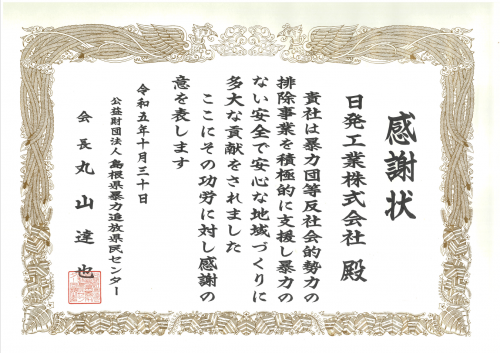 感謝状
日発工業株式会社 殿
貴社は暴力団等反社会的勢力の
排除事業を積極的に支援し暴力の
ない安全で安心な地域づくりに
多大な貢献をされました
ここにその功労に対し感謝の
意を表します
令和五年十月三十日
公益財団法人島根県暴力追放県民センター
会長 丸山達也